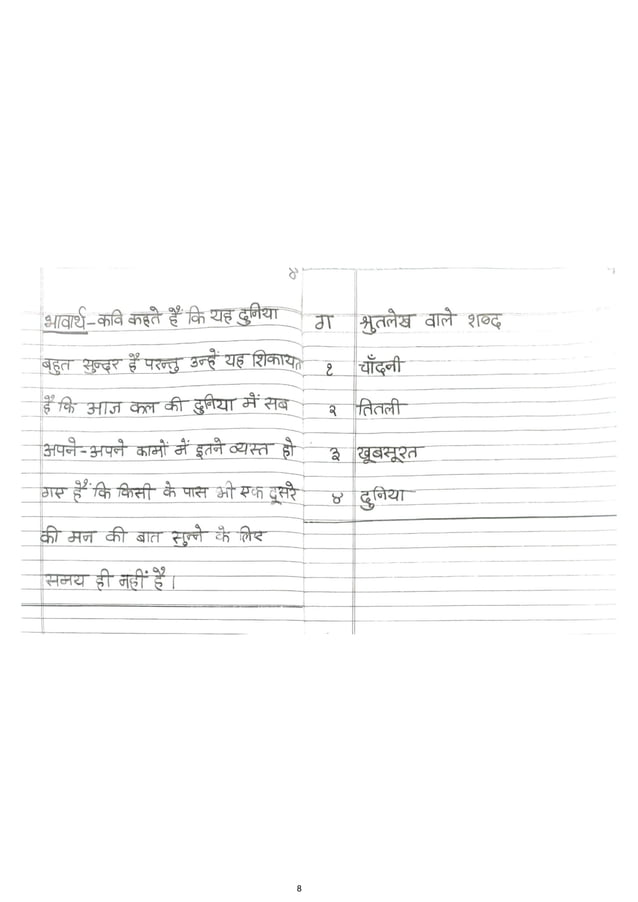 ४
भावार्थ-कवि कहते हैं कि यह दुनिया
बहुत सुन्दर हैं परन्तु उन्हें यह शिकायत
हैं कि आज कल की दुनिया में सब
अपने-अपने कामों में इतने व्यस्त हो
गए हैं कि किसी के पास भी एक दूसरे
की मन की बात सुन्ने के लिए
समय ही नहीं है।
ग श्रुतलेख वाले शब्द
१ चाँदनी
२ तितली
३ खूबसूरत
४ दुनिया
8